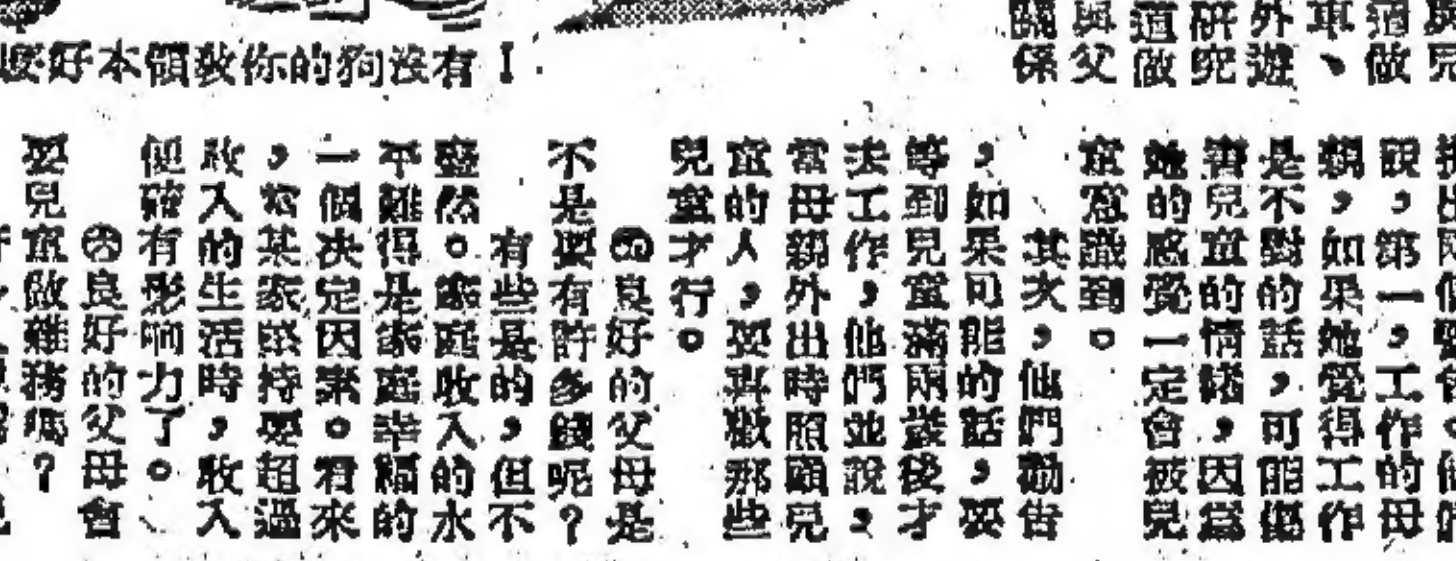 道做
車、
外遊
研究
道做
與父
關係
好本領教你的狗沒有
說,第一,工作的母
親,如果她覺得工作
是不對的話,可能傷
害兒童的情緒,因爲
她的感覺一定會被兒
童意識到。
其次,他們勸告
,如果可能的話,要
等到兒童滿兩歲後才
去工作,他們並說,
當母親外出時照顧兒
童的人,要喜歡那些
兒童才行。
㊃良好的父母是
不是要有許多錢呢?
有些是的,但不
盡然。家庭收入的水
平難得是家庭幸福的
一個决定因素。看來
,當某家堅持要超過
收入的生活時,收入
便確有影响力了。
良好的父母會
要兒童做雜務嗎?